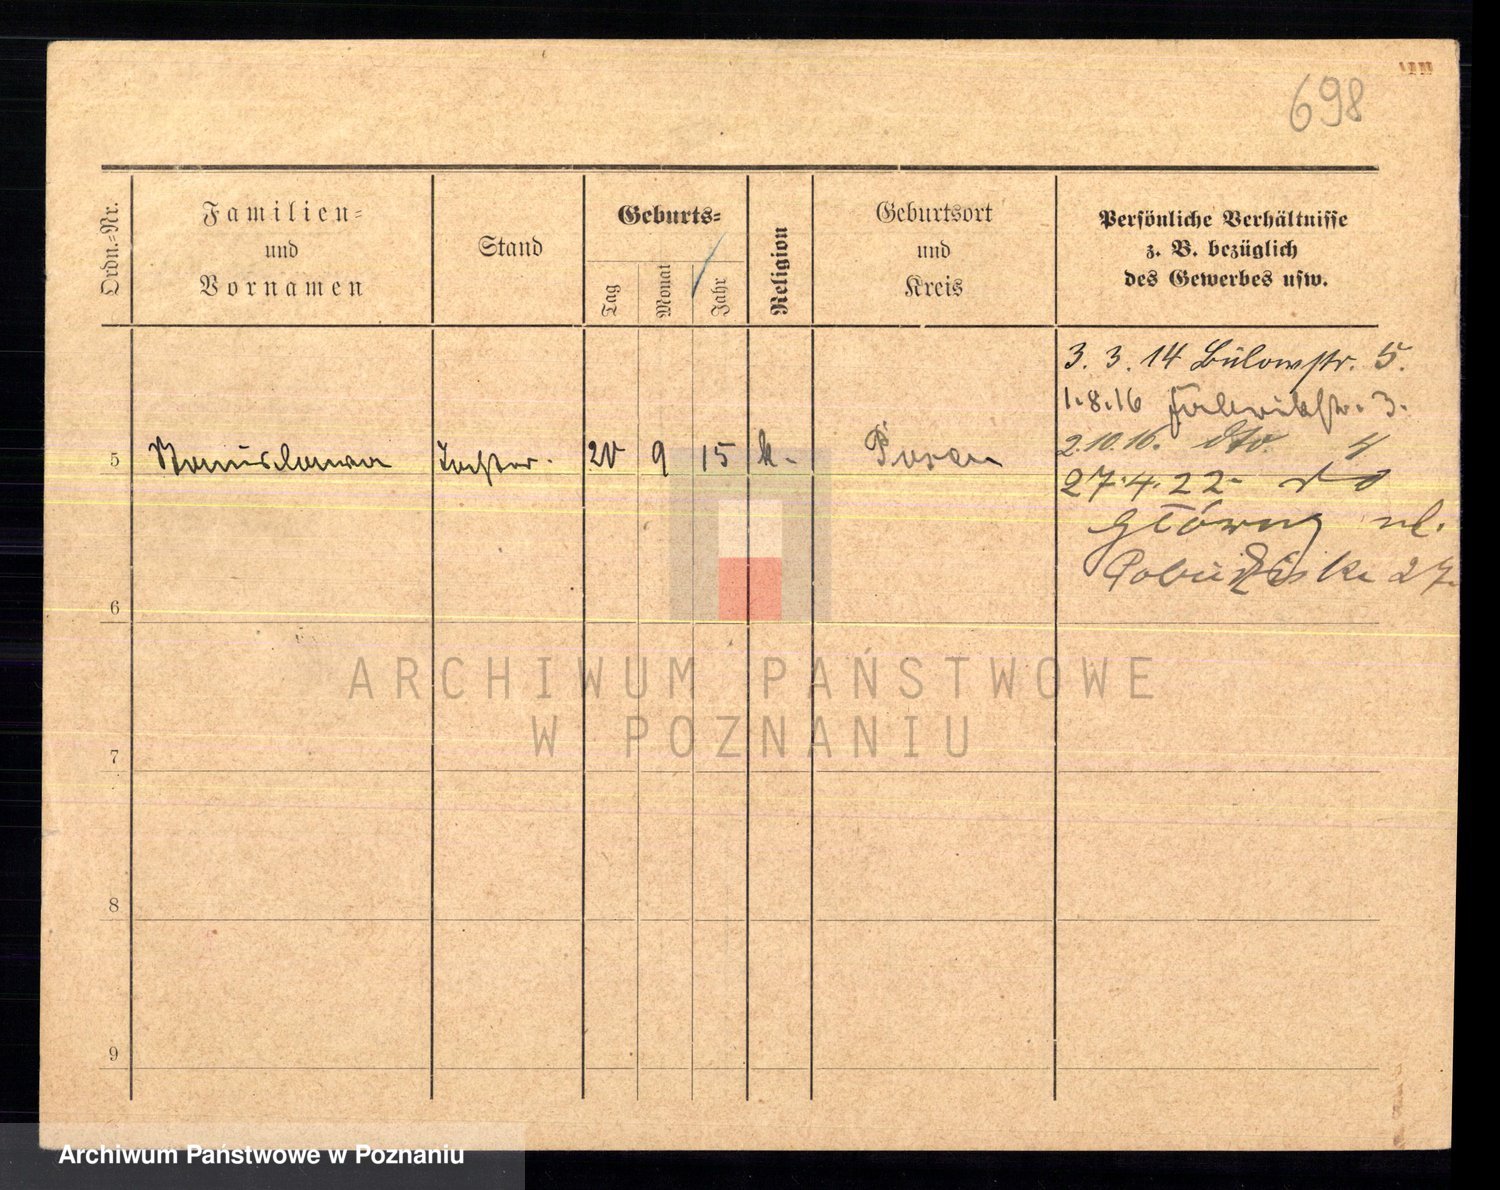 698
Ordn.-Nr.
Familien-
und
Vornamen
Stand
Geburts-
Tag
Monat
Jahr
Religion
Geburtsort
und
Kreis
Persönliche Verhältnisse
z. B. bezüglich
des Gewerbes usw.
3. 3. 14 Bülowstr. 5.
1.8.16 Fabrikstr. 3.
2.10.16. dto. 4
5 Stanislawa Tochter. 20 9 15 k. Posen
27.4.22 do
Główny ul.
Pobiedziska 27.
6
7
8
9
ARCHIWUM PAŃSTWOWE
W POZNANIU
Archiwum Państwowe w Poznaniu